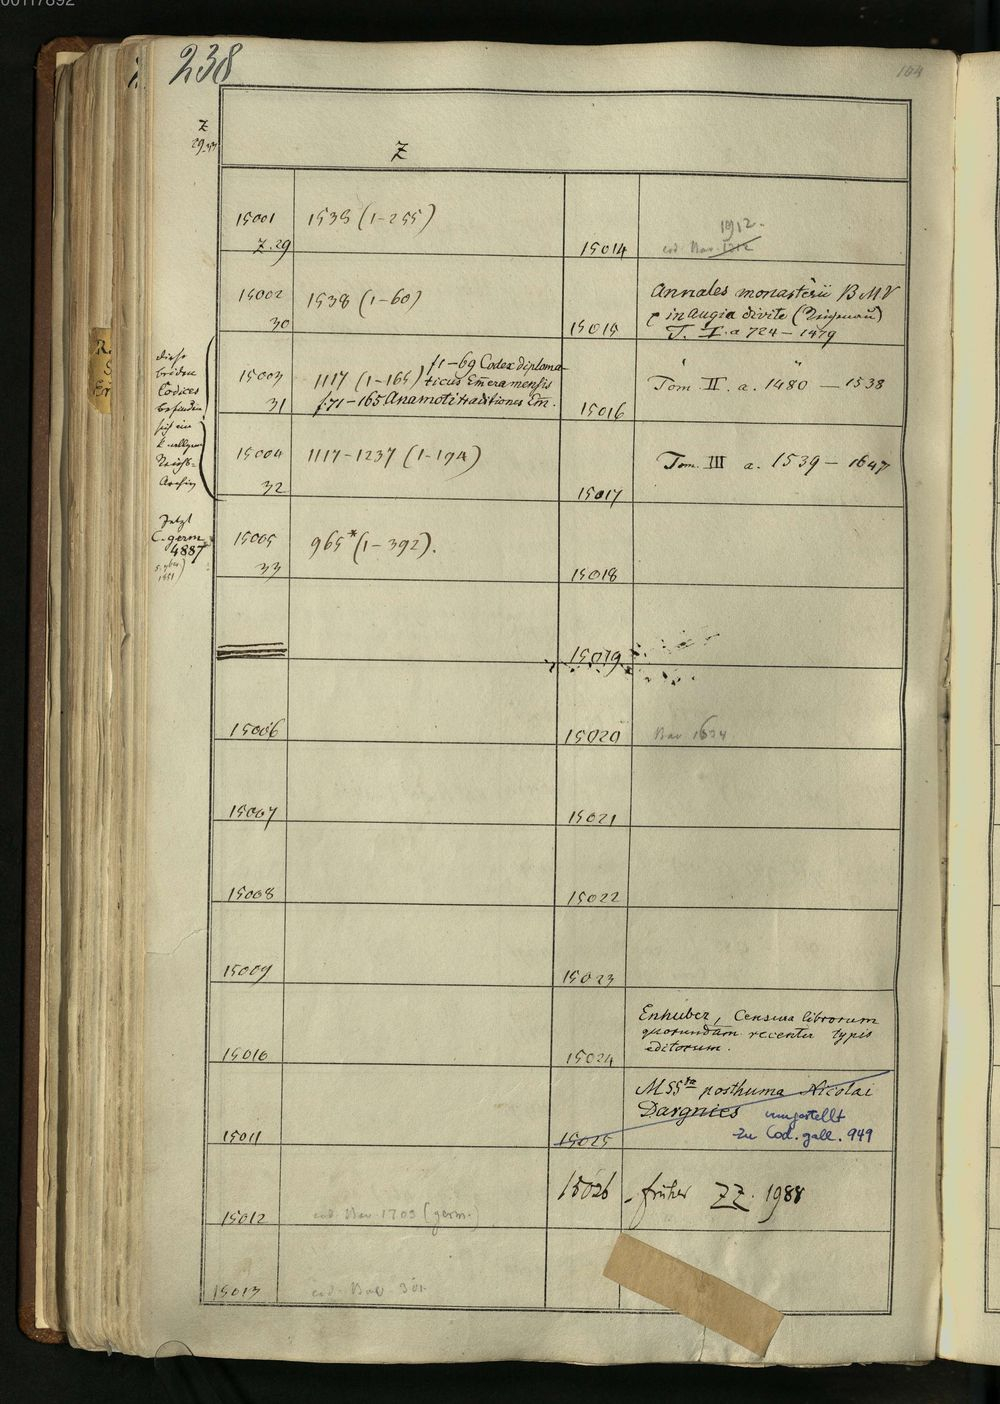 00117892
238
104
Z
29-33
Z
15001
Z. 29
1538 (1-255)
15002
30
1538 (1-60)
diese
beiden
Codices
befinden
sich im
k. allgem
Reichs-
Archiv
15003
31
1117 (1-165) f1-69 Codex diploma-
ticus Emeramensis
f. 71-165 Anamoti traditiones Em.
15004
32
1117-1237 (1-194)
Jetzt
C. germ
4887
1951)
15005
33
965* (1-392).
15006
15007
15008
15009
15010
15011
15012
cod. Bav. 1703 (germ.)
15013
cod. Bav. 301
15014
1912.
cod. Bav. 1212
15015
Annales monasterii BMV
in Augia divite (Reichenau)
T. I. a 724-1479
15016
Tom. II. a. 1480 - 1538
15017
Tom. III a. 1539 - 1647
15018
15019
15020
Bav 1634
15021
15022
15023
15024
Enhuber, Censura librorum
quorundam recenter typis
editorum.
15025
MSSta posthuma Nicolai
Dargnies umgestellt
zu Cod. gall. 949
15026
früher ZZ. 1988